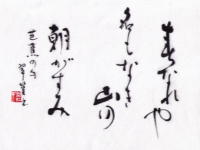 春なれや
名もなき
山の
朝がすみ
芭蕉の句